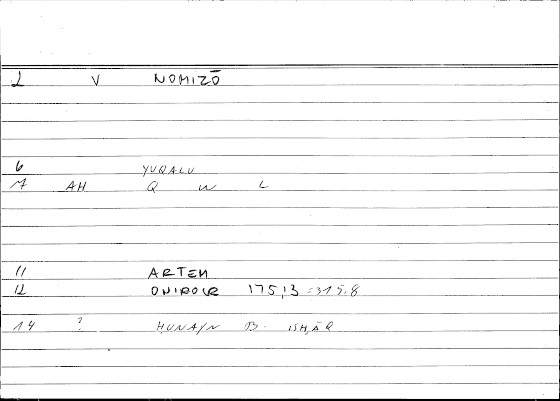 1 V NOMIZŌ
6 YUQALU
7 AH Q W L
11 ARTEM
12 ONIROCR 175,3 = 315.8
14 ? ḤUNAYN B. ISḤĀQ